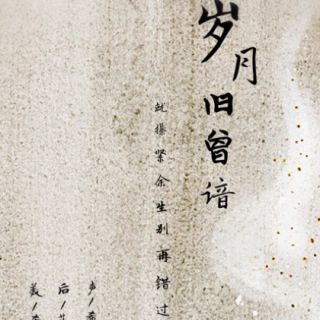 岁月旧曾谙
就攥紧余生别再错过
后/
美/